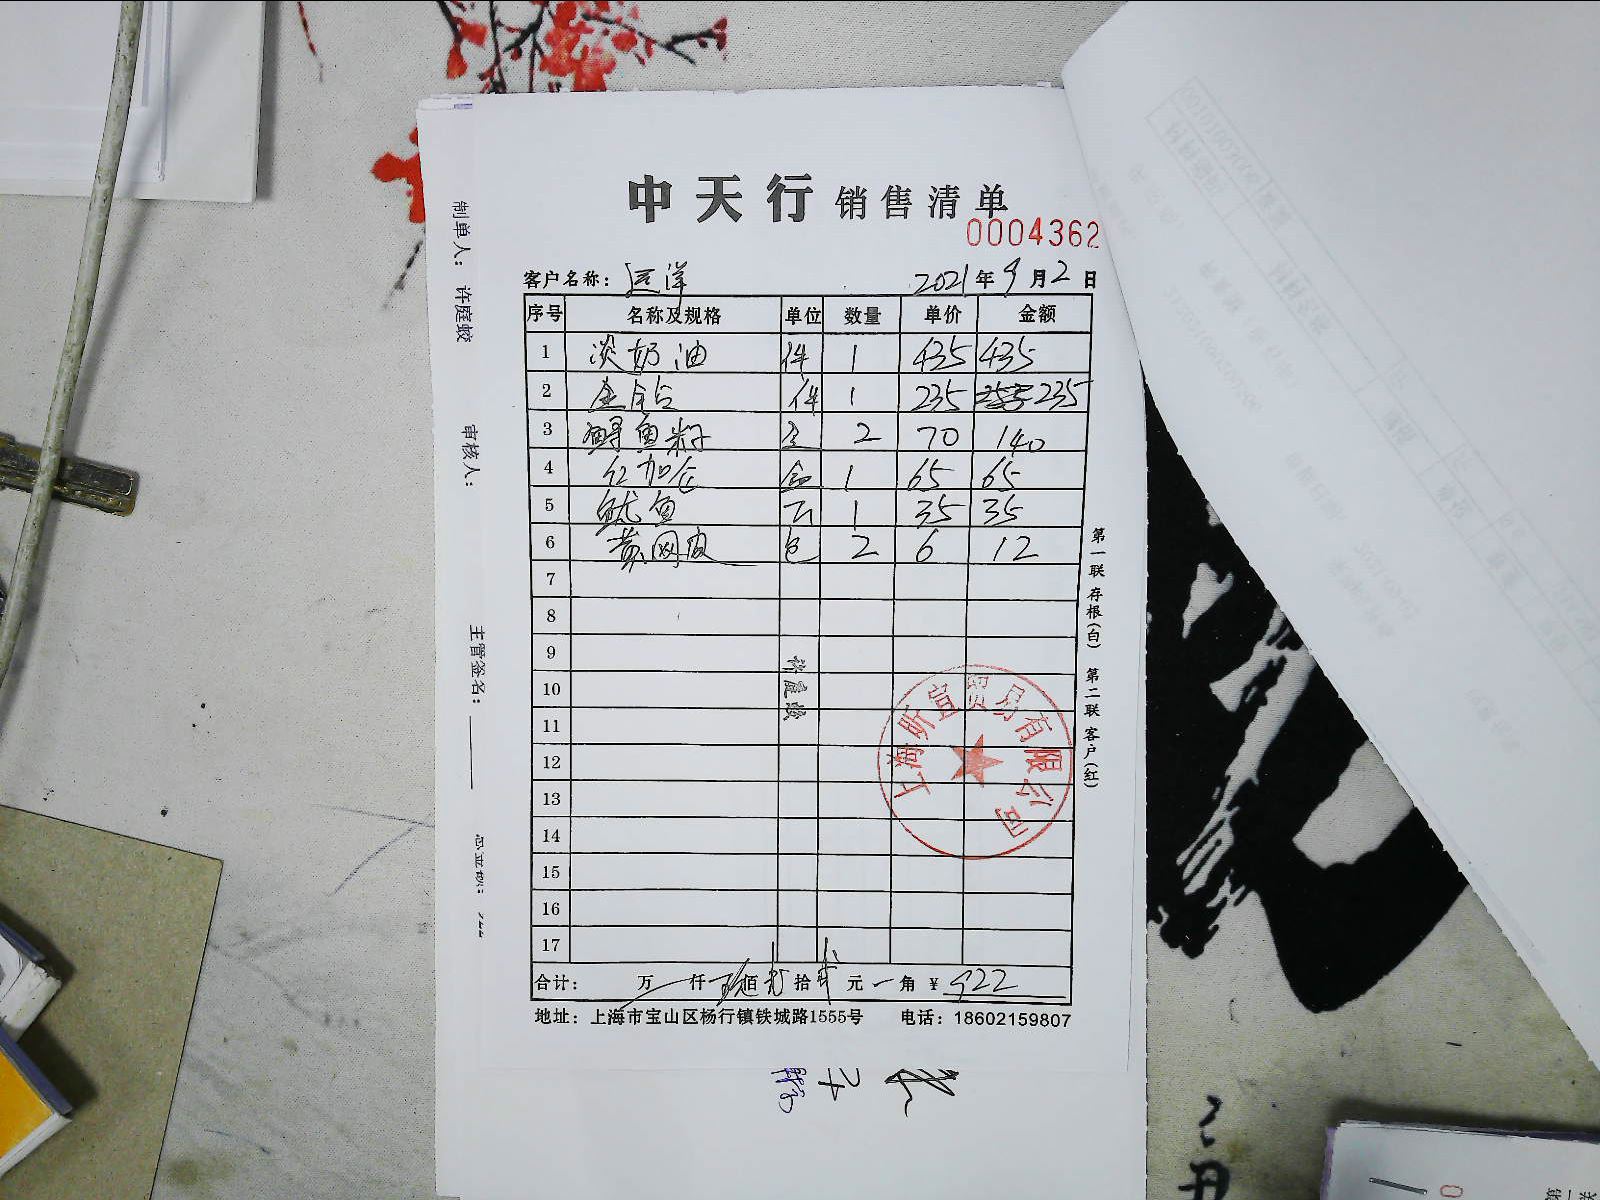 中天行 销售清单
0004362
客户名称： 远洋 2021年9月2日
序号 名称及规格 单位 数量 单价 金额
1 淡奶油 件 1 435 435
2 金钻 件 1 235 235
3 鲟鱼籽 2 70 140
4 红加仑 盒 1 65 65
5 鱿鱼 1 35 35
6 黄网皮 包 2 6 12
7
8
9
10
11
12
13
14
15
16
17
合计： 万 仟 玖佰 贰拾 贰元 一角 ￥ 922
地址：上海市宝山区杨行镇铁城路1555号 电话：18602159807
第一联 存根(白) 第二联 客户(红)
上海昕宜贸易有限公司
许庭蛟
制单人： 许庭蛟
审核人：
主管签名：